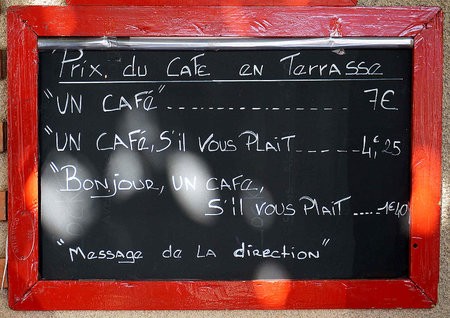 Prix. du Café en Terrasse
"UN CAFé"................ 7€
"UN CAFé, S'il Vous Plaît...... 4,€25
"Bonjour, UN CAFé,
S'il Vous Plaît .... 1€40
"Message de La direction"